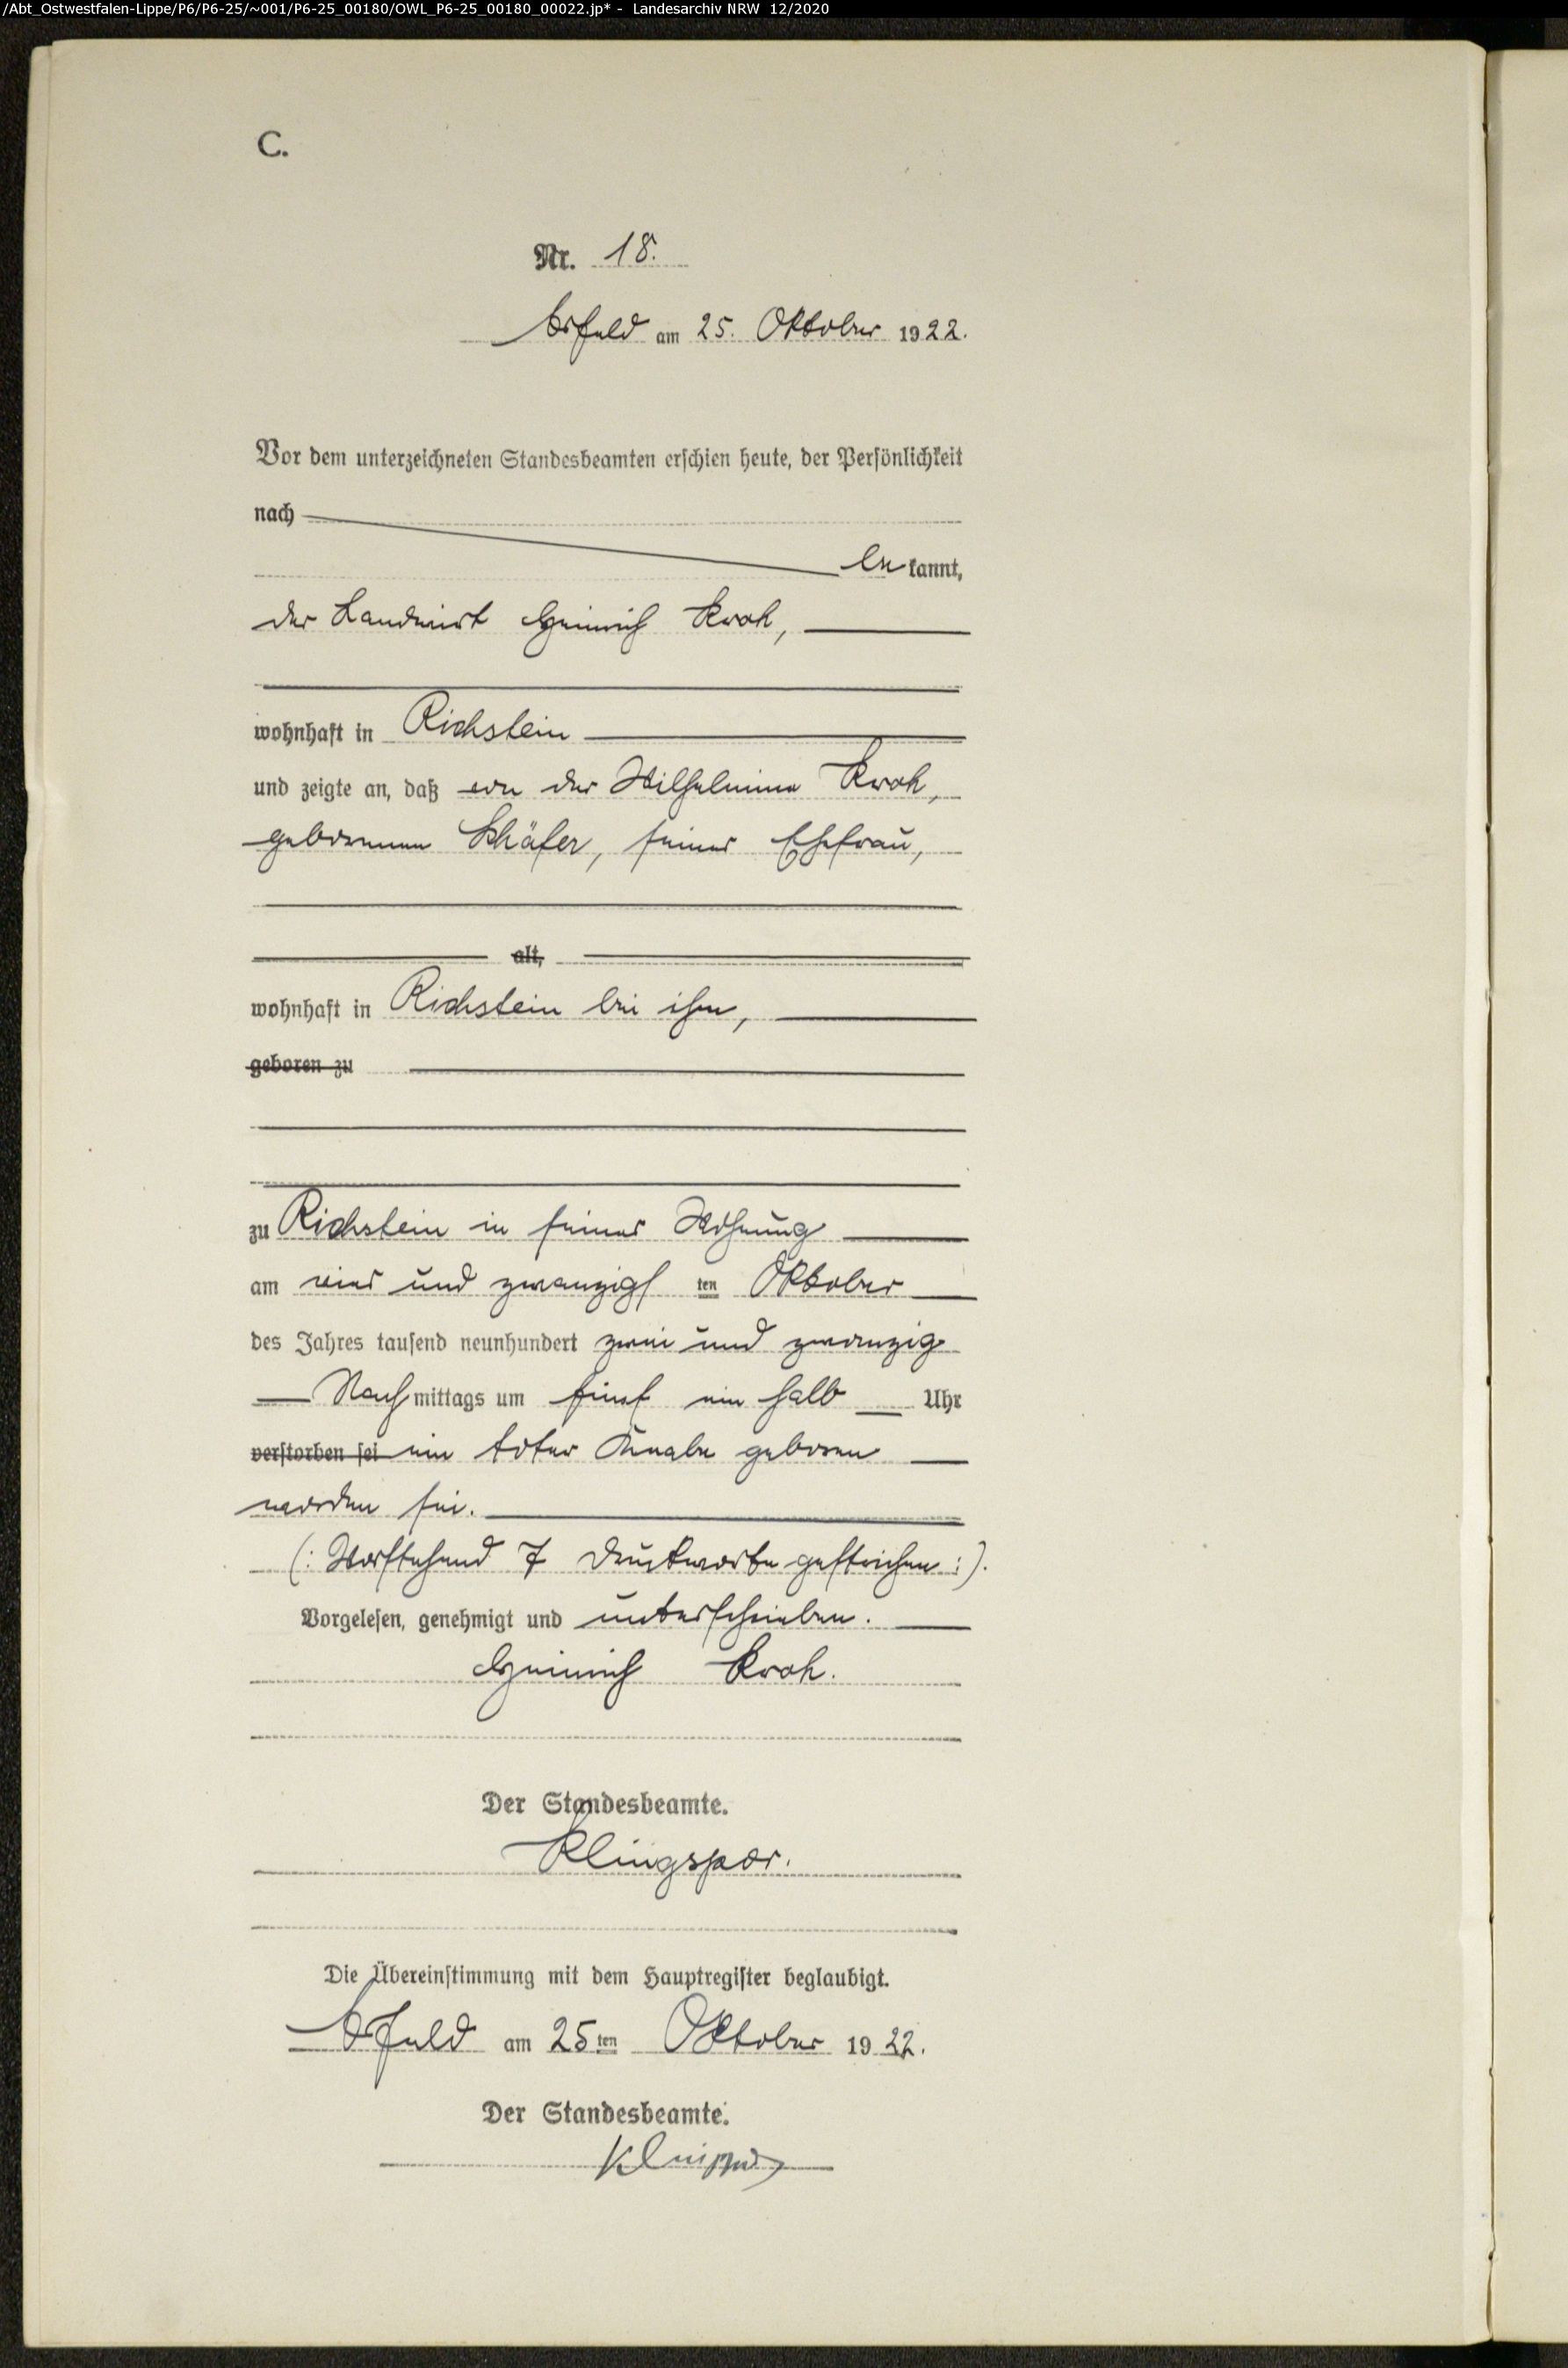 /Abt_Ostwestfalen-Lippe/P6/P6-25/~001/P6-25_00180/OWL_P6-25_00180_00022.jp* - Landesarchiv NRW 12/2020
C.
Nr. 18.
Arfeld am 25. Oktober 1922.
Vor dem unterzeichneten Standesbeamten erschien heute, der Persönlichkeit
nach
bekannt,
der Landwirt Heinrich Kroh,
wohnhaft in Richstein
und zeigte an, daß von der Wilhelmine Kroh,
geborenen Schäfer, seiner Ehefrau,
alt,
wohnhaft in Richstein bei ihm,
geboren zu
zu Richstein in seiner Wohnung
am vier und zwanzigsten Oktober
des Jahres tausend neunhundert zwei und zwanzig
Nachmittags um fünf ein halb Uhr
verstorben sei ein toter Knabe geboren
worden sei.
(: Vorstehend 7 Druckworte gestrichen :).
Vorgelesen, genehmigt und unterschrieben.
Heinrich Kroh.
Der Standesbeamte.
Klingspor.
Die Übereinstimmung mit dem Hauptregister beglaubigt.
Arfeld am 25ten Oktober 1922.
Der Standesbeamte.
Klingspor